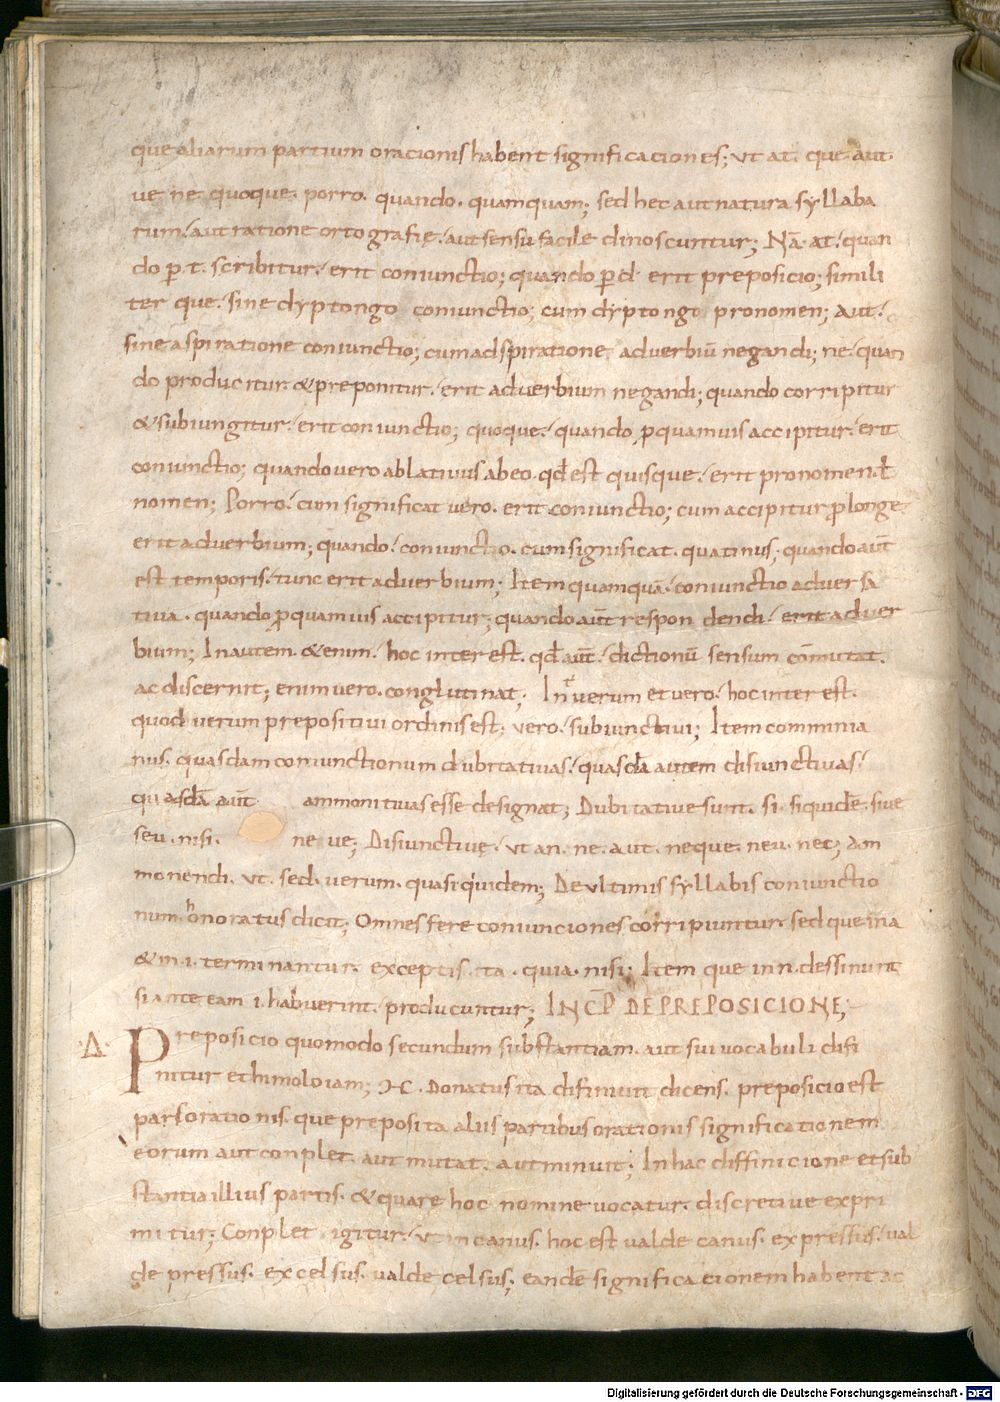 que aliarum partium oracionis habent significaciones; ut at. que. aut.
ue ne quoque. porro. quando. quamquam; sed hec aut natura syllaba
rum. aut ratione ortografię. aut sensu facile dinoscuntur; Nā. at. quan
do p̄. t. scribitur. erit coniunctio; quando p̄ d. erit preposicio; simili
ter que. sine dyptongo coniunctio; cum dyptongo pronomen; aut.
sine aspiratione coniunctio; cum adspiratione adverbiū negandi; ne. quan
do producitur & preponitur. erit adverbium negandi; quando corripitur
& subiungitur. erit coniunctio; quoque. quando p quamuis accipitur. erit
coniunctio; quando uero ablatiuus abeo. qđ est quisque. erit pronomen. ł
nomen; Porro. cum significat uero. erit coniunctio; cum accipitur p longe
erit adverbium; quando. coniunctio. cum significat. quatinus; quando aūt
est temporis. tunc erit adverbium; Item quamquā. coniunctio adversa
tiua. quando p quamuis accipitur; quando aūt respondendi. erit adver
bium; In autem. & enim. hoc interest. qđ aūt. dictionū sensum cōmutat.
ac discernit; enim uero. conglutinat; Inť uerum et uero. hoc interest.
quod uerum prepositiui ordinis est; uero. subiunctiui; Item comminia
nus. quasdam coniunctionum dubitatiuas. quasdā autem disiunctiuas.
quasdā aūt ammonitiuas esse designat; Dubitatiue sunt. si. siquidē. siue
seu. nisi. ne ue; Disiunctiuę. ut an. ne. aut. neque. neu. nec; am
monendi. ut. sed. uerum. quasi quidem; De ultimis syllabis coniunctio
num. honoratus dicit; Omnes fere coniunciones corripiuntur. sed que in a
& in i. terminantur. exceptis. ita. quia. nisi; Item que in n. dessinunt
si ante eam i. habuerint. producuntur; INCP̄ DE PREPOSICIONE;
·Δ· Preposicio quomodo secundum substantiam. aut sui uocabuli difi
nitur ethimoloiam; ·Donatus ita difiniuit dicens. preposicio est
pars orationis. que preposita aliis partibus orationis significationem
eorum aut conplet. aut mutat. aut minuit; In hac diffinicione et sub
stantia illius partis. & quare hoc nomine uocatur. discretiue expri
mitur; Conplet igitur. ut incanus. hoc est ualde canus. expressus. ual
de pressus. excelsus. ualde celsus; eandē significacionem habent ac
Digitalisierung gefördert durch die Deutsche Forschungsgemeinschaft - DFG